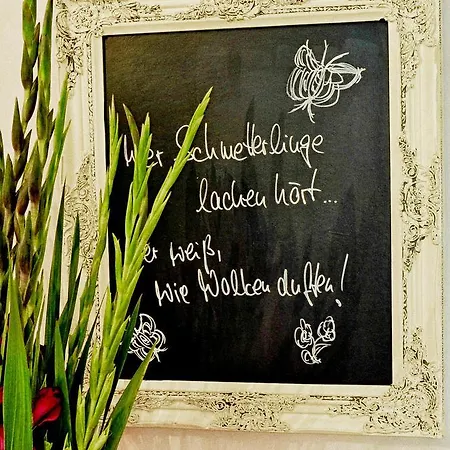 wer Schmetterlinge
lachen hört...
er weiß,
wie Wolken duften!